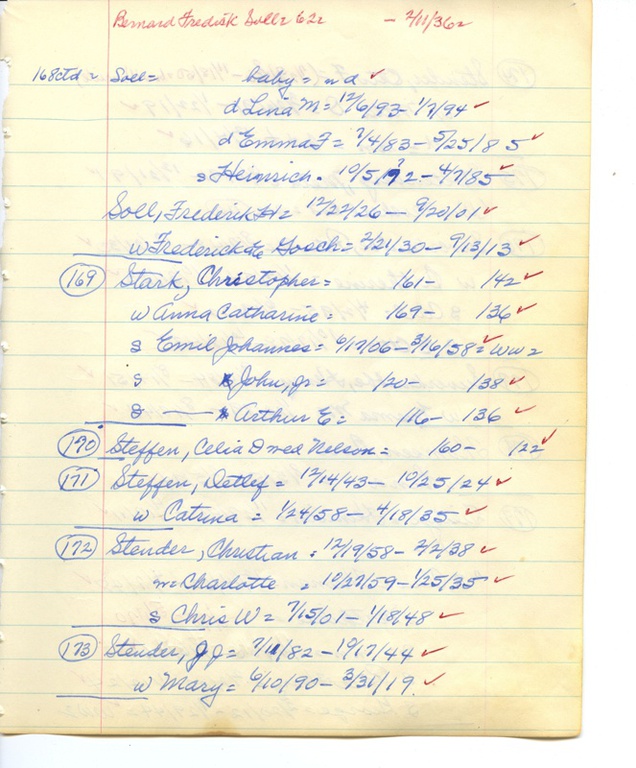 Bernard Fredrik Soll = 62 = - 2/11/36 =
168ctd = Soll = baby = nd ✓
d Lina M = 12/6/93 - 1/7/94 ✓
d Emma F = 7/4/83 - 5/25/85 ✓
s Heinrich = 10/5/ - 4/7/85 ✓
Soll, Frederik H = 12/22/26 - 9/20/01 ✓
w Frederickke Gosch = 2/21/30 - 9/13/13 ✓
169 Stark, Christopher = /61 - /42 ✓
w Anna Catharine = /69 - /36 ✓
s Emil Johannes = 6/17/06 - 3/16/58 = ✓ WW2
s John, jr = /20 - /38 ✓
s Arthur E = /16 - /36 ✓
170 Steffen, Celia D wed Nelson = /60 - /22 ✓
171 Steffen, Detlef = 12/14/43 - 10/25/24 ✓
w Catrina = 1/24/58 - 4/18/35 ✓
172 Stender, Christian = 12/19/58 - 2/2/38 ✓
w Charlotte = 10/27/59 - 1/25/35 ✓
s Chris W = 7/15/01 - 1/18/48 ✓
173 Stender, J J = /82 - /44 ✓
w Mary = 6/10/90 - 3/31/19 ✓